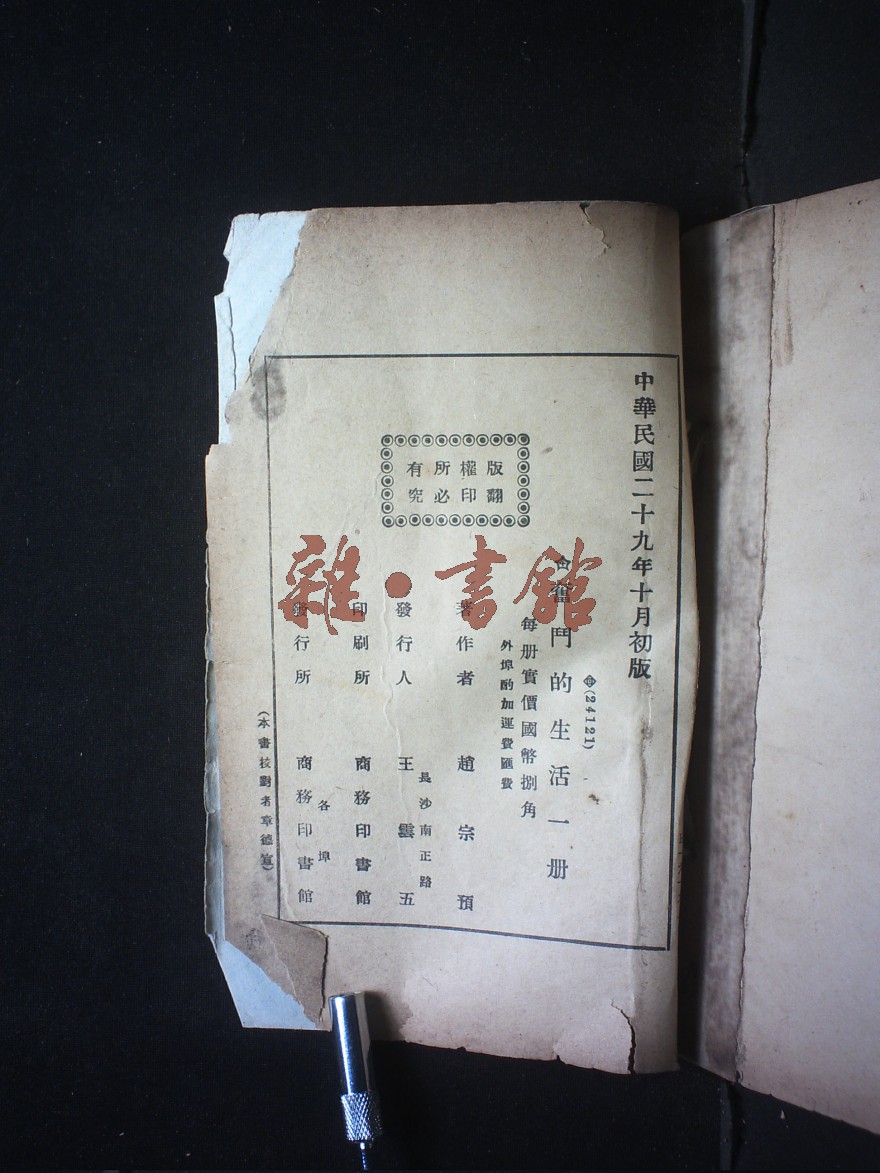 中華民國二十九年十月初版
(24121)
奮鬥的生活一册
每册實價國幣捌角
外埠酌加運費匯費
版權所有
翻印必究
著作者 趙宗預
長沙南正路
發行人 王雲五
印刷所 商務印書館
各埠
發行所 商務印書館
(本書校對者章德宣)
雜·書館